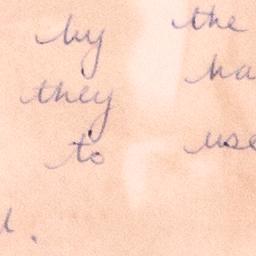 by the
they ha
to use